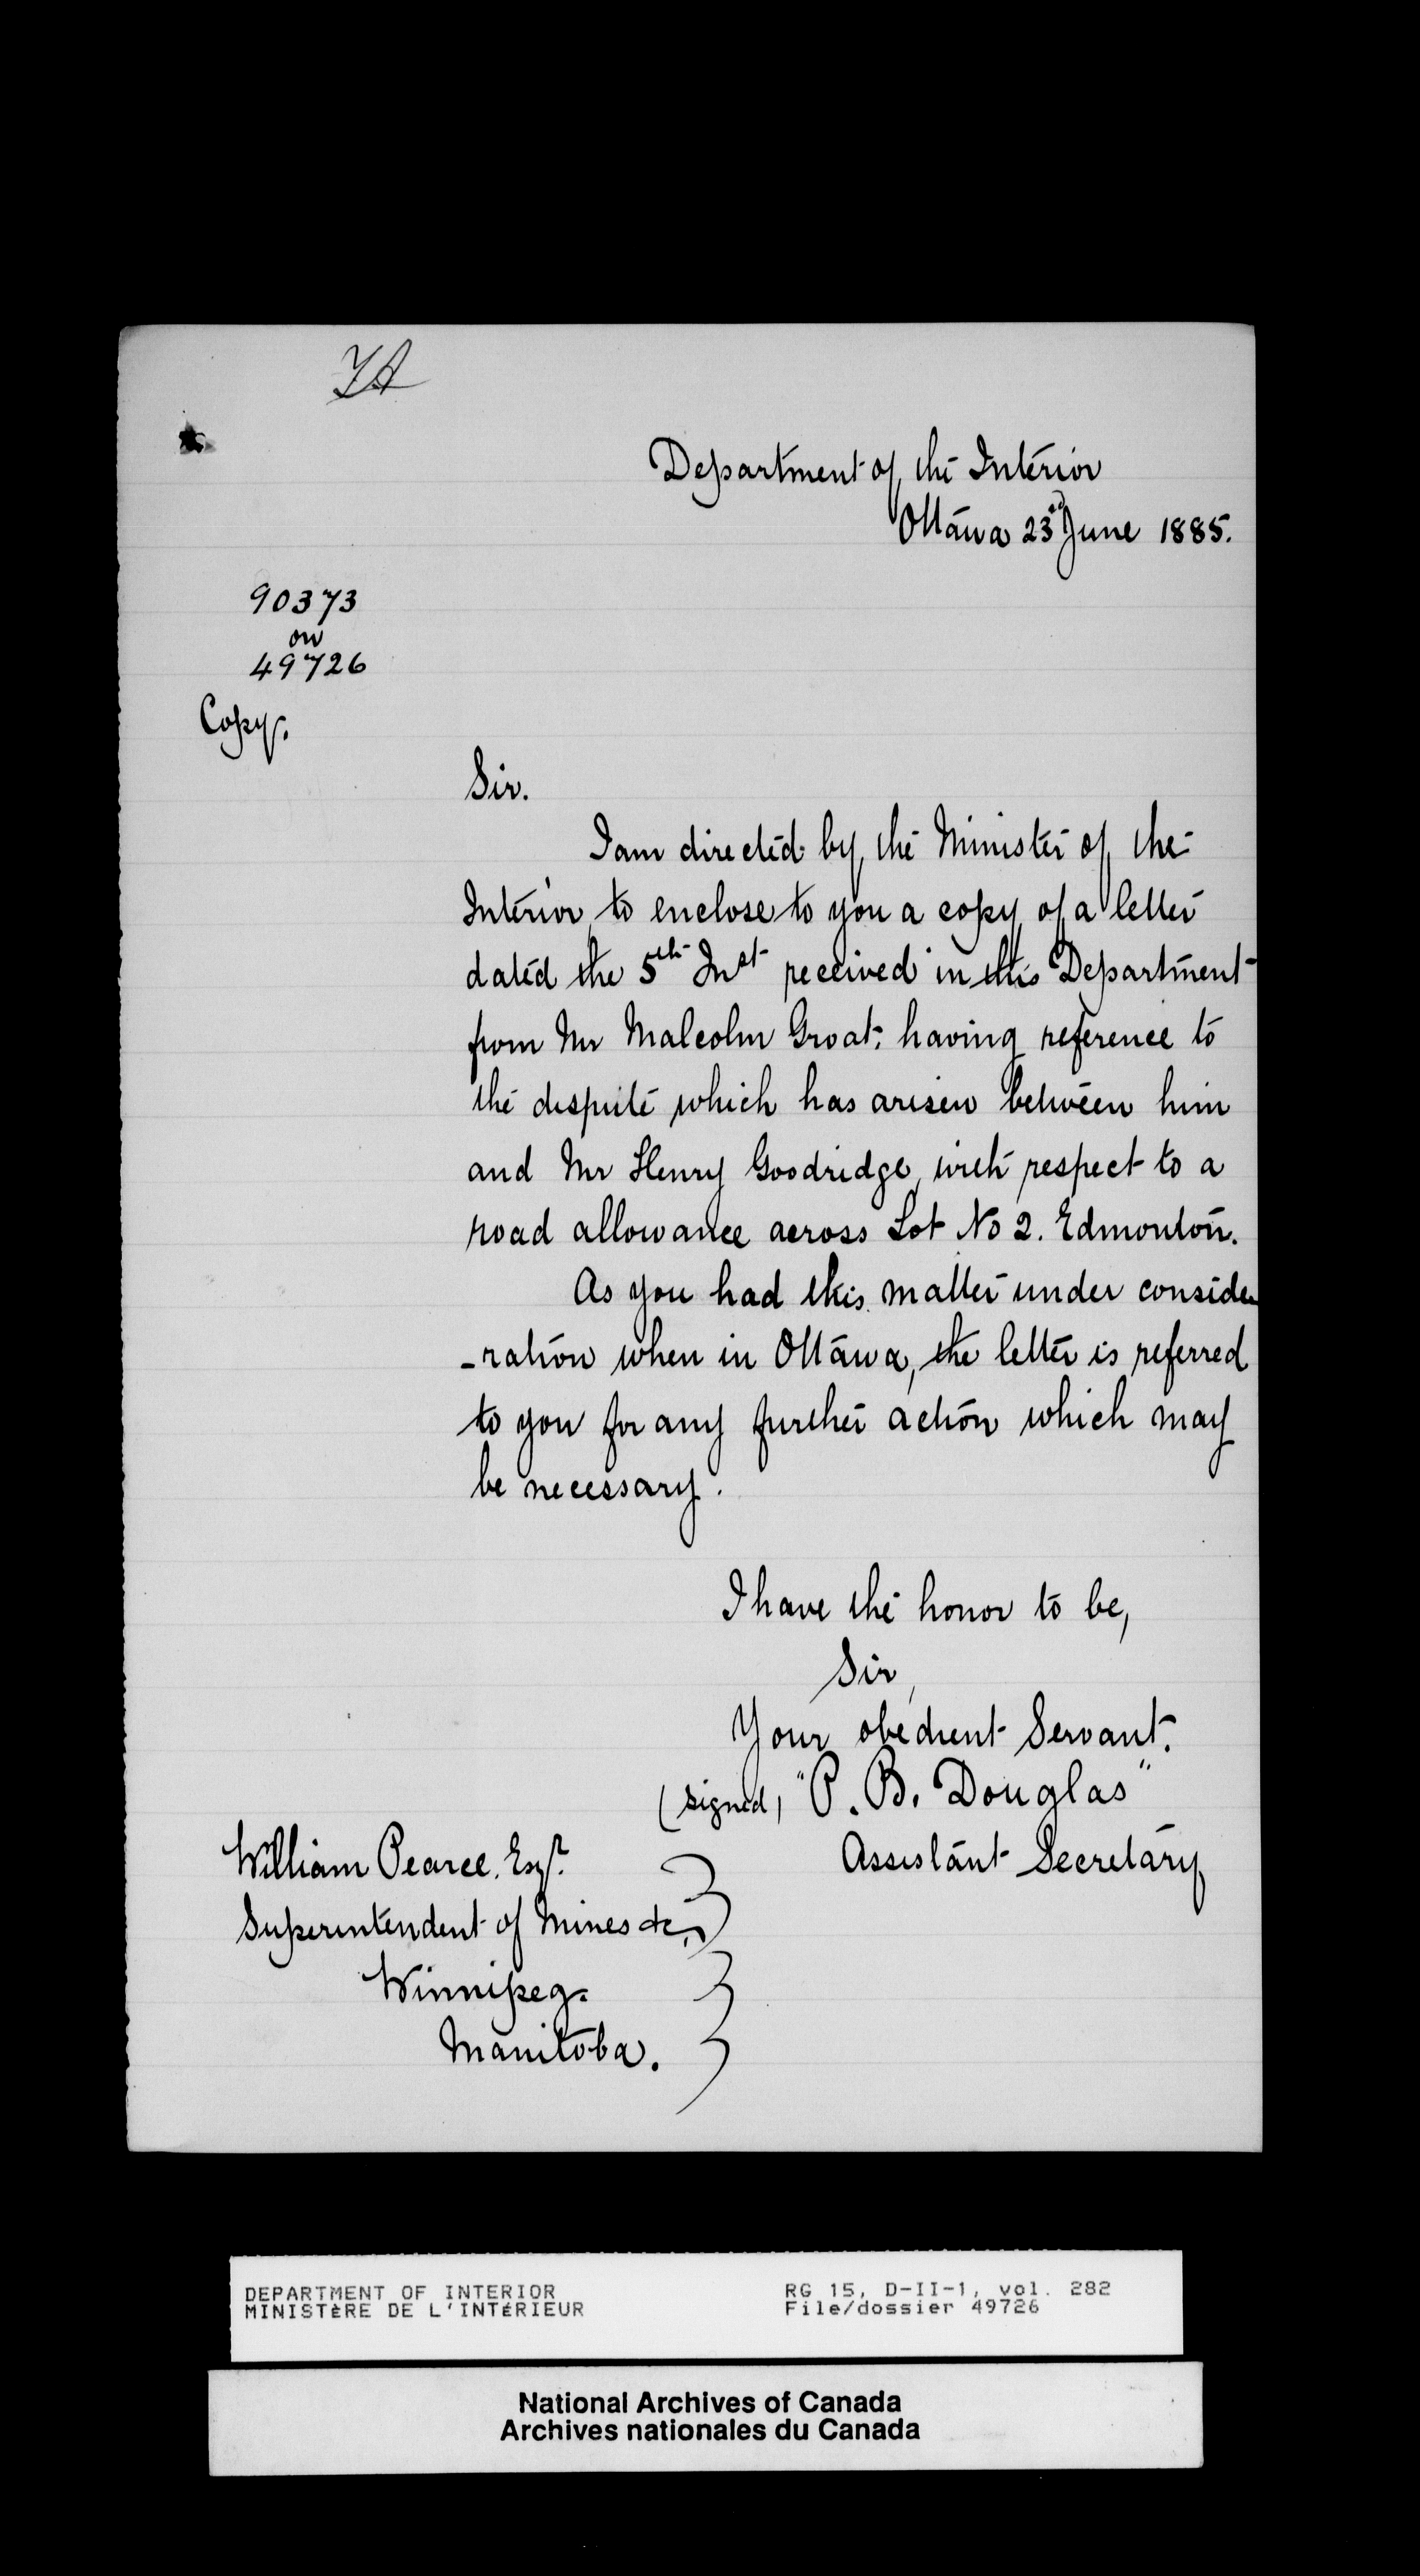 Department of the Interior
Ottawa 23rd June 1885.
90373
on
49726
Copy.
Sir.
I am directed by the Minister of the
Interior to enclose to you a copy of a letter
dated the 5th Inst received in this Department
from Mr Malcolm Groat, having reference to
the dispute which has arisen between him
and Mr Henry Goodridge, with respect to a
road allowance across Lot No 2. Edmonton.
As you had this matter under conside
-ration when in Ottawa, the letter is referred
to you for any further action which may
be necessary.
I have the honor to be,
Sir,
Your obedient Servant.
(signed) "P. B. Douglas"
Assistant Secretary
William Pearce. Esqr.
Superintendent of Mines &c.,
Winnipeg.
Manitoba.
DEPARTMENT OF INTERIOR
MINISTÈRE DE L'INTÉRIEUR
RG 15, D-II-1, vol. 282
File/dossier 49726
National Archives of Canada
Archives nationales du Canada